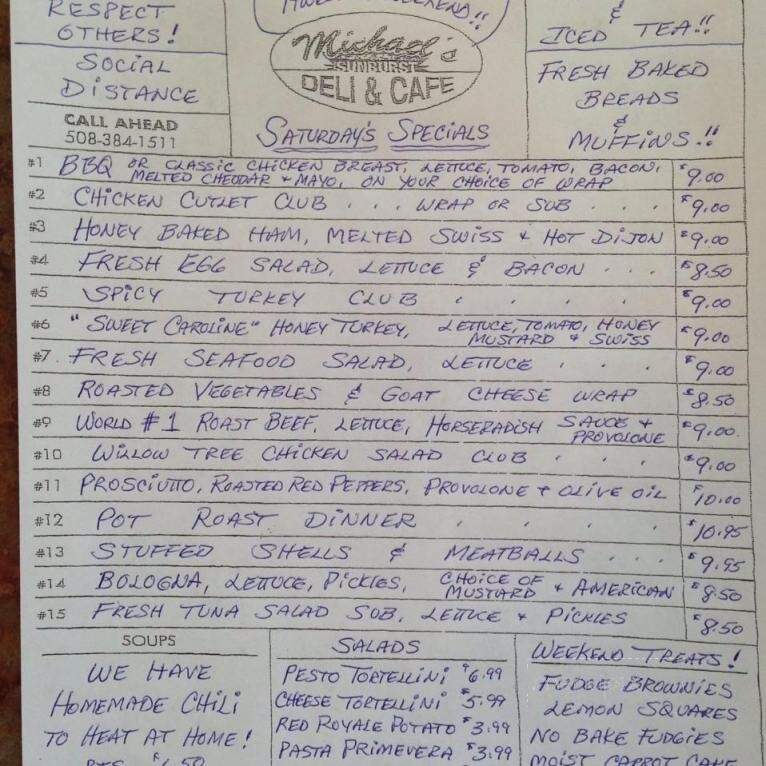 RESPECT
OTHERS!
SOCIAL
DISTANCE
CALL AHEAD
508-384-1511
WEEKEND!!
Michael's
SUNBURST
DELI & CAFE
SATURDAY'S SPECIALS
&
ICED TEA!!
FRESH BAKED
BREADS
&
MUFFINS!!
#1 BBQ OR CLASSIC CHICKEN BREAST, LETTUCE, TOMATO, BACON,
MELTED CHEDDAR + MAYO, ON YOUR CHOICE OF WRAP $9.00
#2 CHICKEN CUTLET CLUB . . . WRAP OR SUB . . . $9.00
#3 HONEY BAKED HAM, MELTED SWISS + HOT DIJON $9.00
#4 FRESH EGG SALAD, LETTUCE & BACON . . . $8.50
#5 SPICY TURKEY CLUB . . . . $9.00
#6 "SWEET CAROLINE" HONEY TURKEY, LETTUCE, TOMATO, HONEY
MUSTARD & SWISS $9.00
#7 FRESH SEAFOOD SALAD, LETTUCE . . . $9.00
#8 ROASTED VEGETABLES & GOAT CHEESE WRAP $8.50
#9 WORLD #1 ROAST BEEF, LETTUCE, HORSERADISH SAUCE +
PROVOLONE $9.00
#10 WILLOW TREE CHICKEN SALAD CLUB . . . $9.00
#11 PROSCIUTTO, ROASTED RED PEPPERS, PROVOLONE + OLIVE OIL $10.00
#12 POT ROAST DINNER . . . . $10.95
#13 STUFFED SHELLS & MEATBALLS . . . $9.95
#14 BOLOGNA, LETTUCE, PICKLES, CHOICE OF
MUSTARD & AMERICAN $8.50
#15 FRESH TUNA SALAD SUB, LETTUCE + PICKLES $8.50
SOUPS
WE HAVE
HOMEMADE CHILI
TO HEAT AT HOME!
SALADS
PESTO TORTELLINI $6.99
CHEESE TORTELLINI $5.99
RED ROYALE POTATO $3.99
PASTA PRIMEVERA $3.99
WEEKEND TREATS!
FUDGE BROWNIES
LEMON SQUARES
NO BAKE FUDGIES
MOIST CARROT CAKE